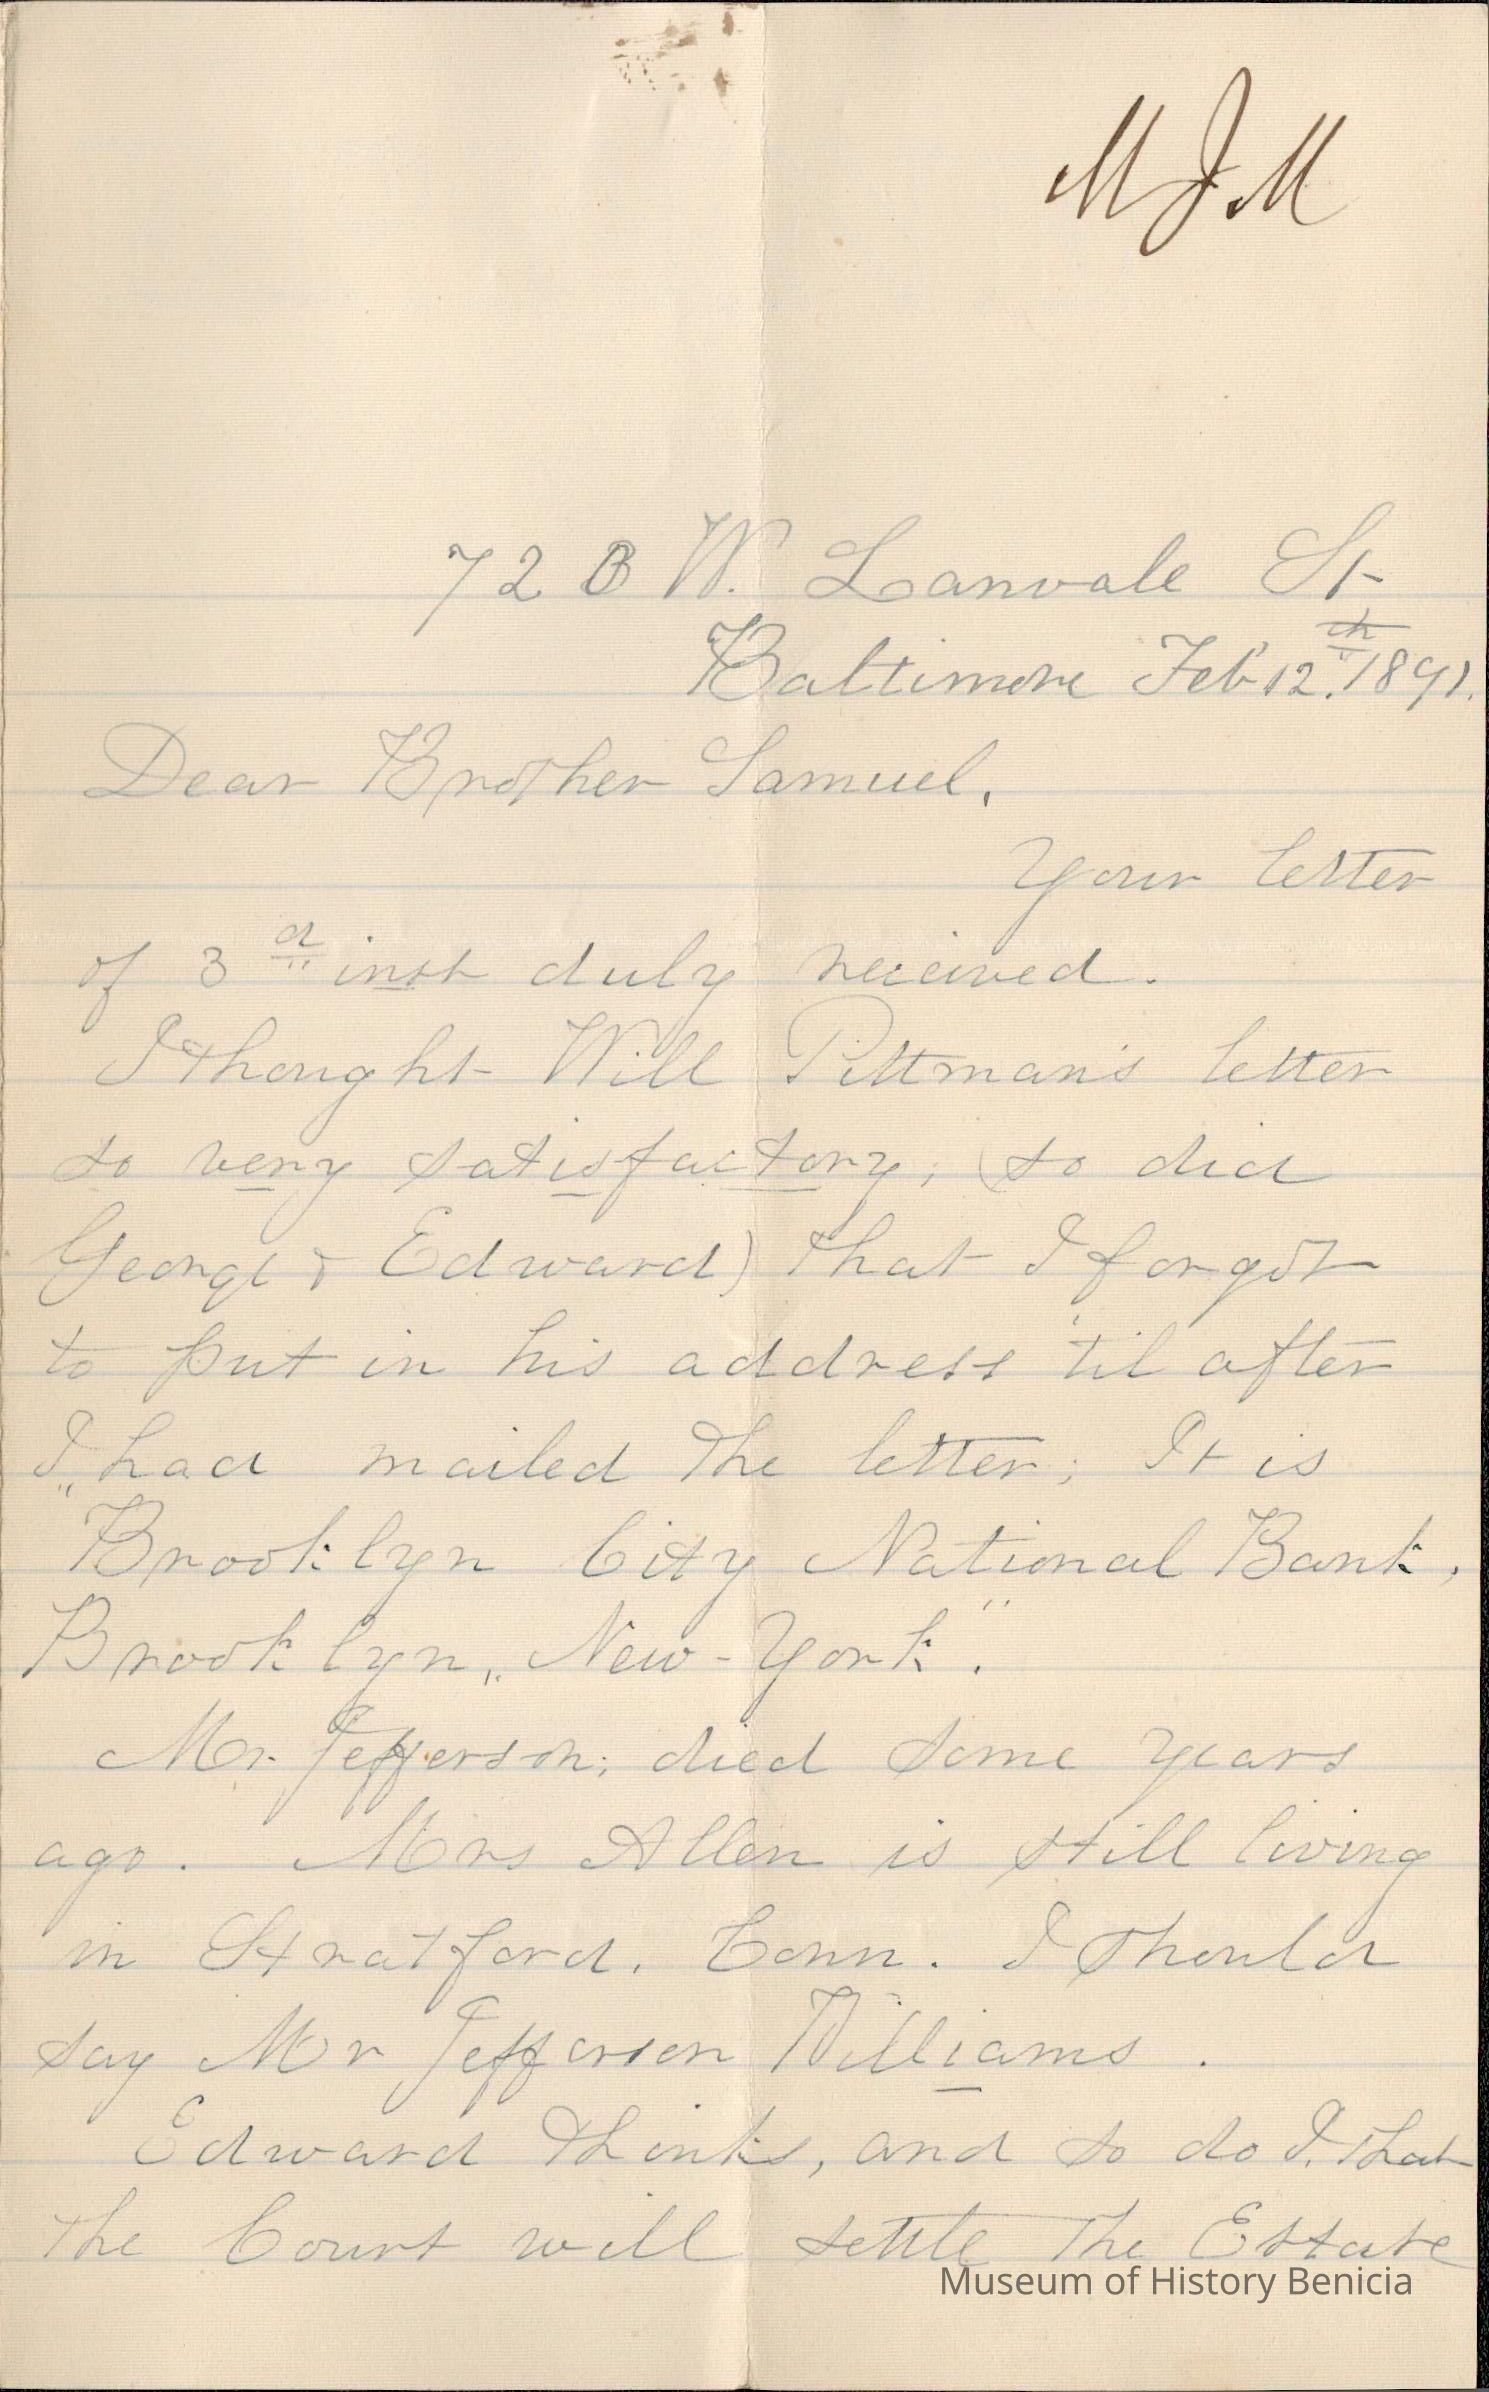 MJM
728 W. Lanvale St
Baltimore Feb 12.th 1891.
Dear Brother Samuel,
Your letter
of 3d inst duly received.
I thought Will Pittman's letter
so very satisfactory, (so did
George & Edward) that I forgot
to put in his address 'til after
I had mailed the letter; It is
"Brooklyn City National Bank,
Brooklyn, New-York".
Mr. Jefferson; died some years
ago. Mrs Allen is still living
in Stratford. Conn. I should
say Mr Jefferson Williams.
Edward thinks, and so do I, that
the Court will settle the Estate
Museum of History Benicia